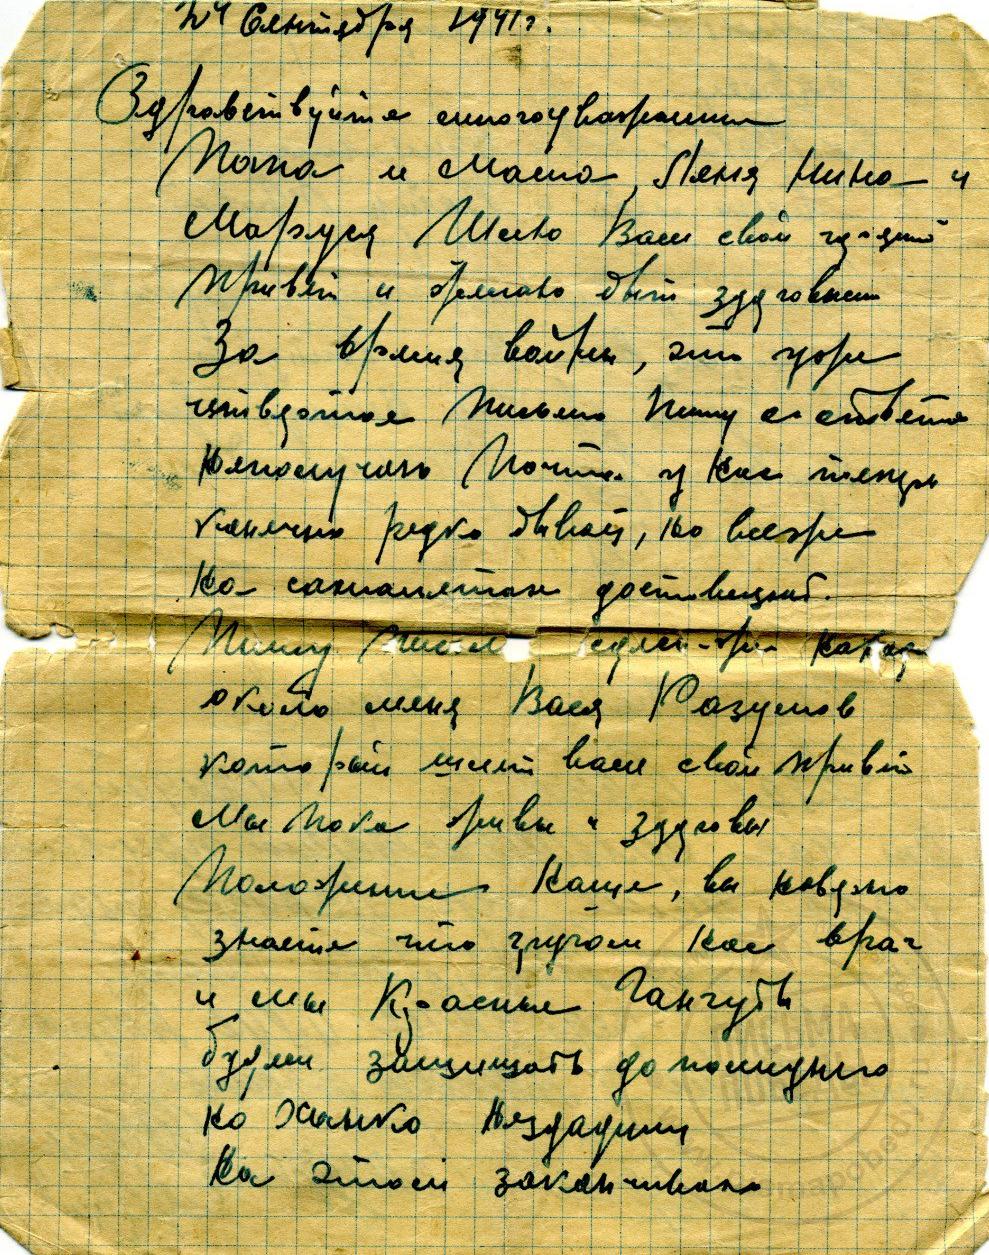 24 Сентября 1941 г.
Здравствуйте многоуважаемые
Папа и Мама, Леня Нина и
Маруся Шлю Вам свой
привет и желаю быт здоровыми
За время войны, это уже
письмо пишу а ответа
неполучаю Почта у нас теперь
конечно редко бывает, но всеже
на самолетах доставляют.
Пишу
около меня Вася Разумов
который шлет вам свой привет
Мы пока живы и здоровы
Положение наше, вы наверно
знаете что кругом нас враг
и мы Красный Гангут
будем защищать до последнего
но Ханко нездадим
На этом заканчиваю
ПИСЬМА
ПОБЕДЫ